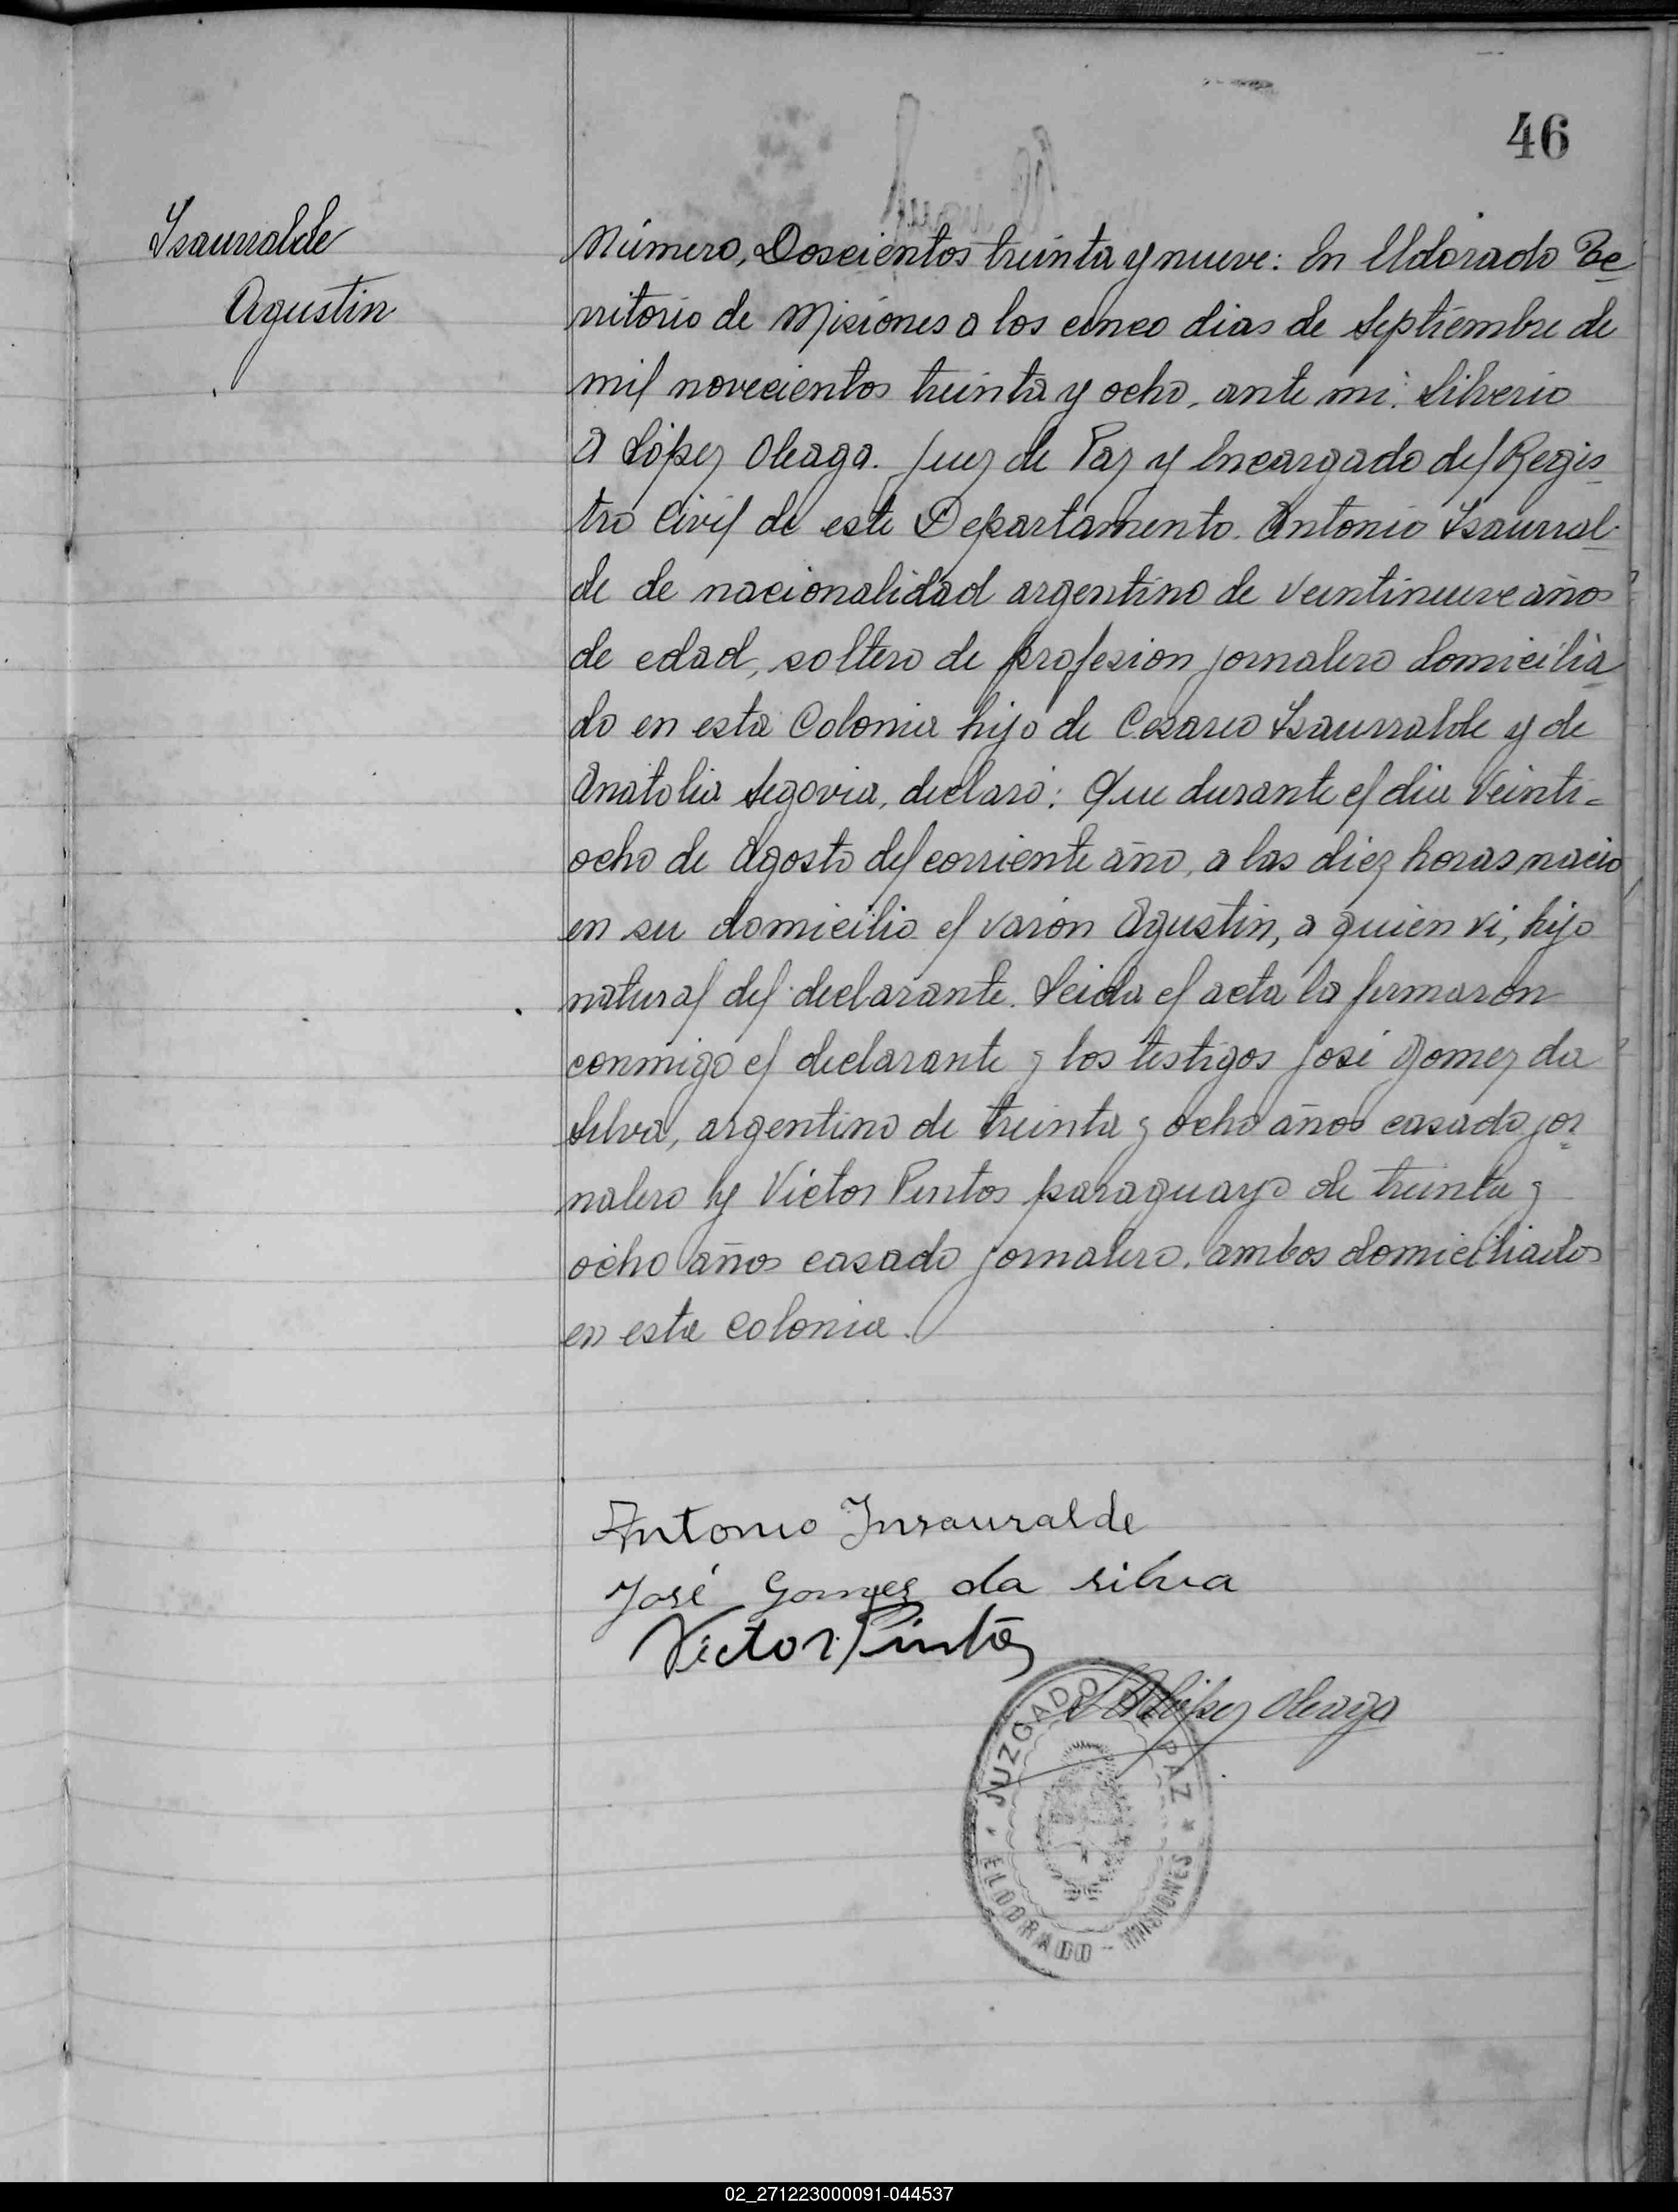 46
Isaurralde
Agustin
Número, Doscientos treinta y nueve: En Eldorado Te
rritorio de Misiones a los cinco dias de Septiembre de
mil novecientos treinta y ocho, ante mi: Silverio
A López Oleaga. Juez de Paz y Encargado del Regis
tro Civil de este Departamento. Antonio Isaurral
de de nacionalidad argentino de veintinueve años
de edad, soltero de profesion jornalero domicilia
do en esta Colonia hijo de Cesareo Isaurralde y de
Anatolia Segovia, declaró: Que durante el dia Veinti=
ocho de Agosto del corriente año, a las diez horas, nació
en su domicilio el varón Agustin, a quien vi, hijo
natural del declarante. Leida el acta la firmaron
conmigo el declarante y los testigos José Gomez da
Silva, argentino de treinta y ocho años casado jor
nalero y Victor Pintos paraguayo de treinta y
ocho años casado jornalero. ambos domiciliados
en esta colonia.
Antonio Insauralde
José Gomes da silva
Victor Pintos
S A López Oleaga
JUZGADO DE PAZ
ELDORADO - MISIONES
02_271223000091-044537